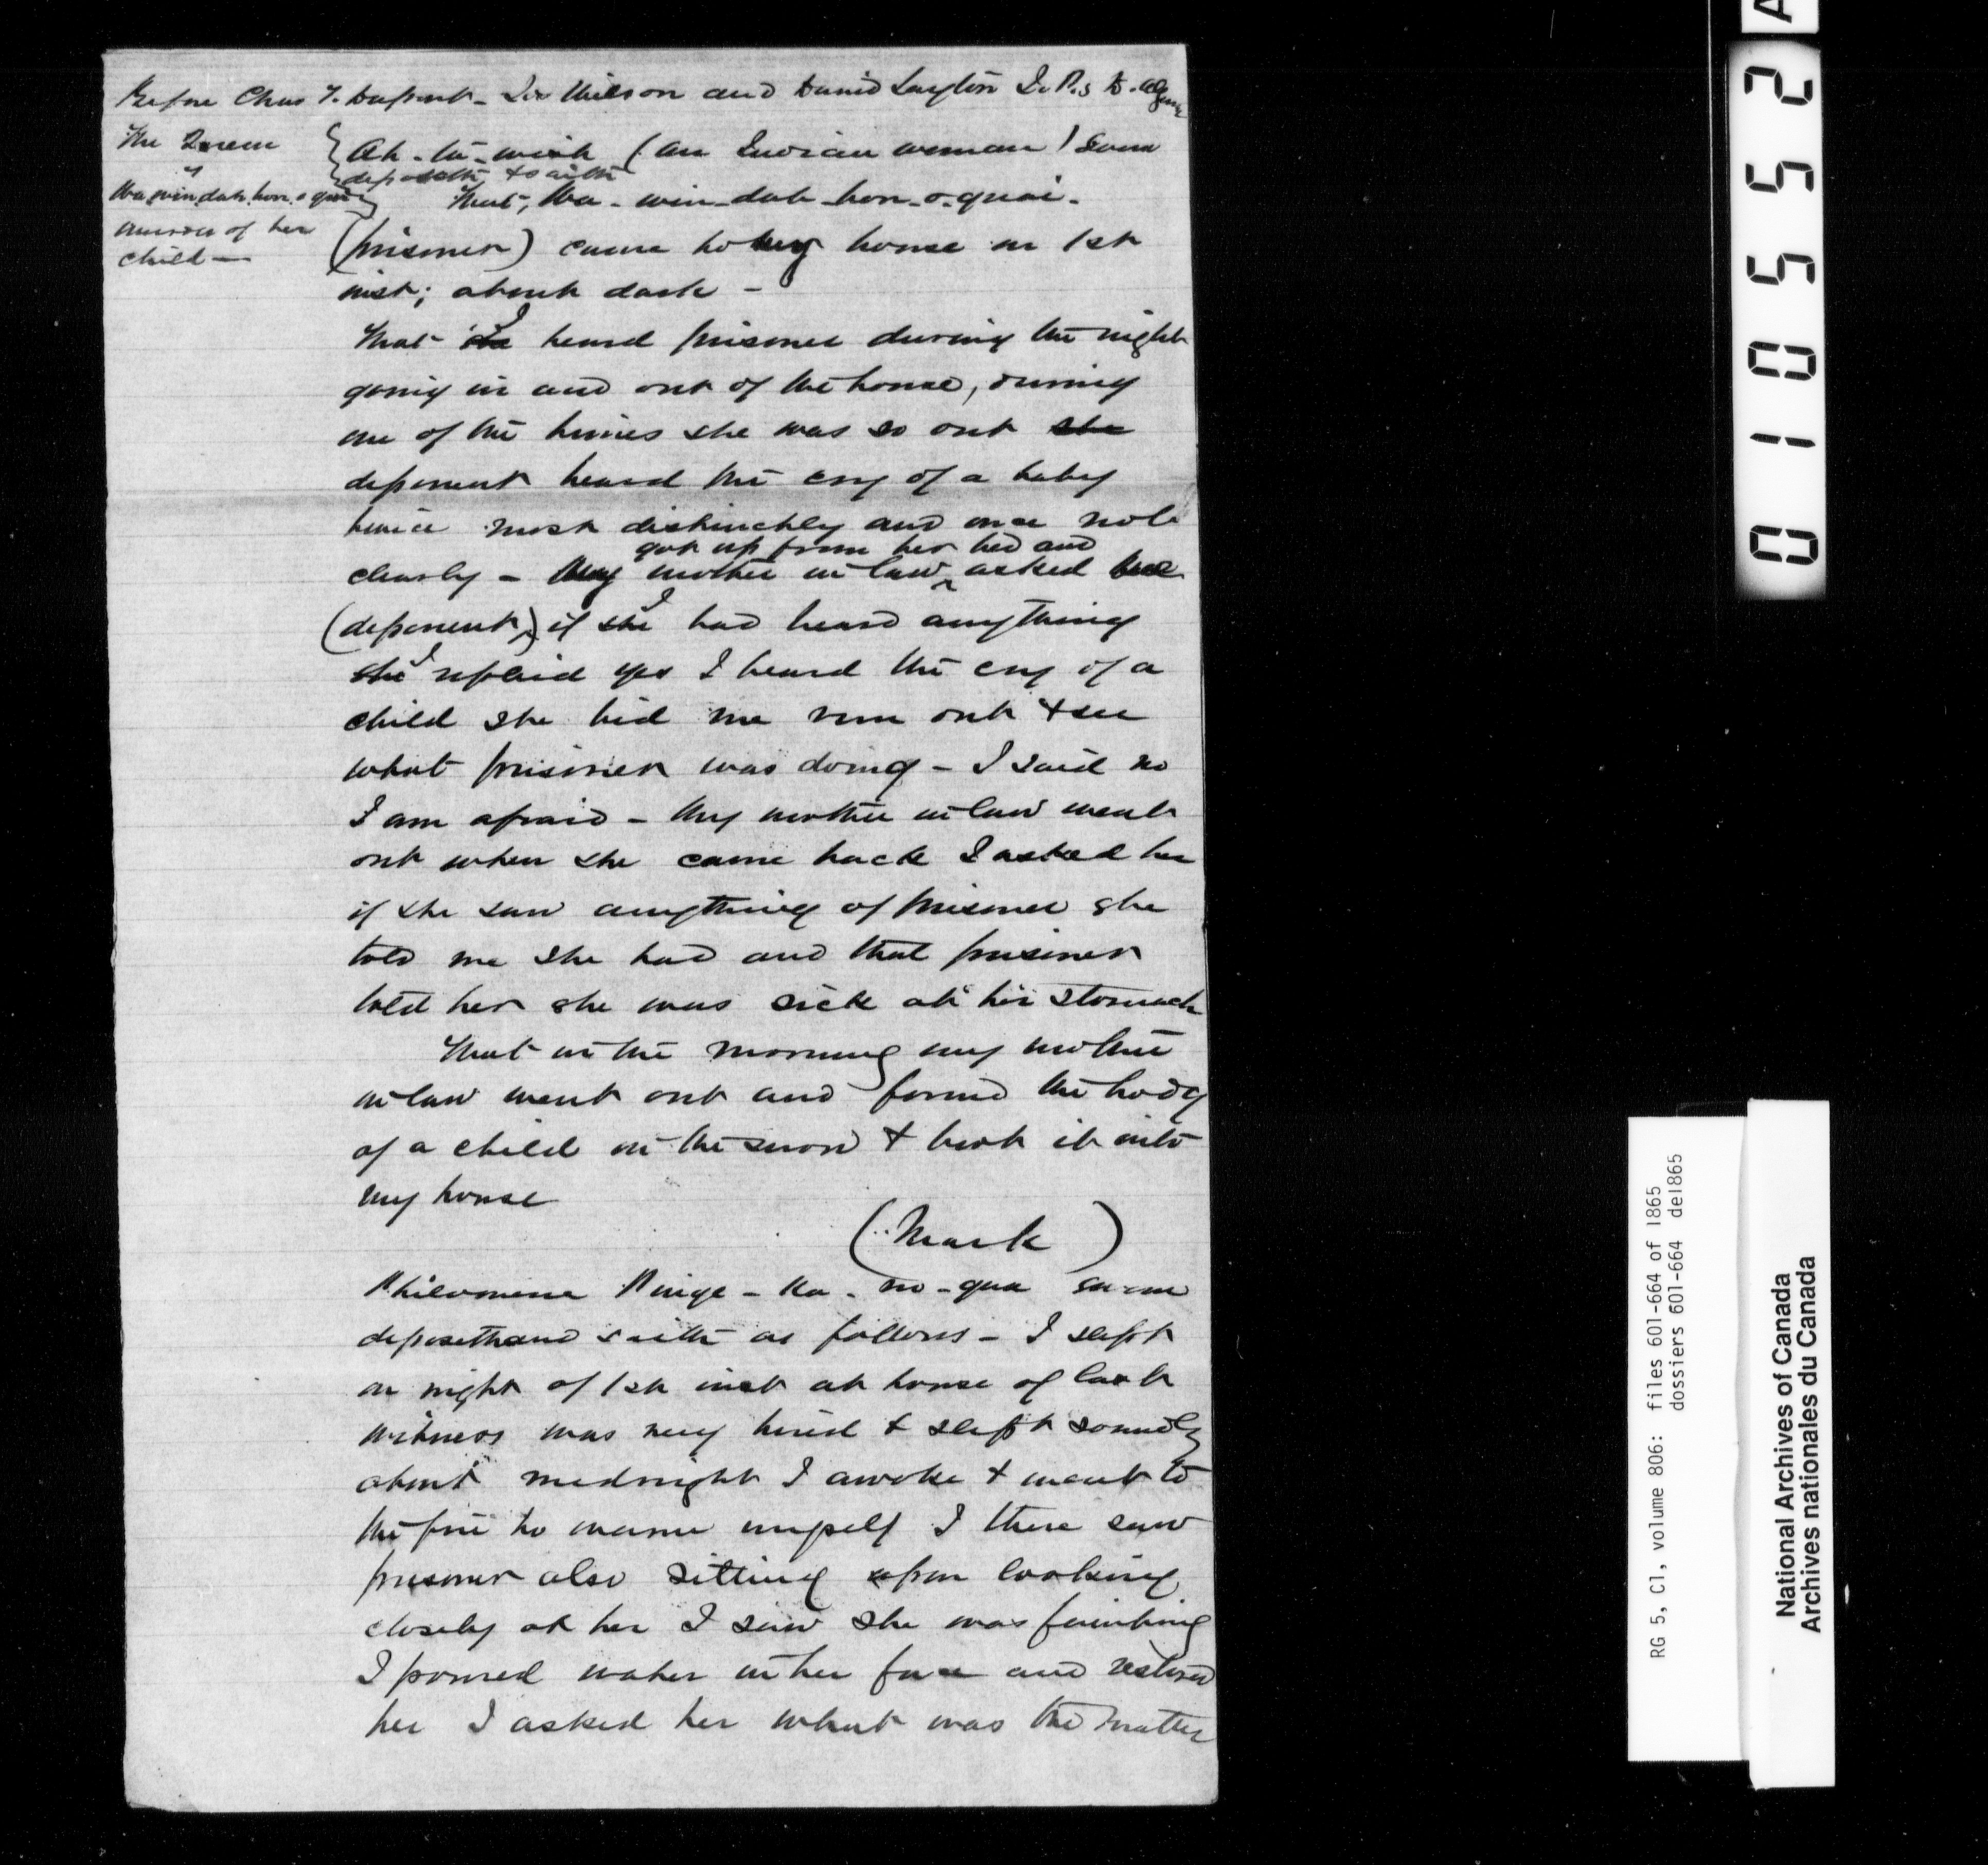 Before Chas T. Dupont - Jos Wilson and David Layton J. P.s D. Algoma
The Queen
v
Wa.win.dah.hon.o.quai
murder of her
child —
Ah - tu - wish (an Indian woman) sworn
deposeth & saith
That, Wa - win - dab - hon - o - quai -
(prisoner) came to my house on 1st
inst; about dark -
That she I heard prisoner during the night
going in and out of the house, during
one of the times she was so out she
deponent heard the cry of a baby
twice most distinctly and once not
clearly - My mother in law ^ got up from her bed and asked me
(deponent) if she I had heard anything
she I replied yes I heard the cry of a
child she bid me run out & see
what prisoner was doing - I said no
I am afraid - My mother in law went
out when she came back I asked her
if she saw anything of prisoner she
told me she had and that prisoner
told her she was sick at her stomach
That in the morning my mother
in law went out and found the body
of a child in the snow & took it into
my house
(Mark)
Philomene Pinge - Ka - no - qua sworn
deposeth and saith as follows - I slept
on night of 1st inst at house of last
witness was very tired & slept soundly
about midnight I awoke & went to
the fire to warm myself I there saw
prisoner also sitting upon looking
closely at her I saw she was fainting
I poured water in her face and restored
her I asked her what was the matter
010552
RG 5, C1, volume 806: files 601-664 of 1865
dossiers 601-664 de1865
National Archives of Canada
Archives nationales du Canada